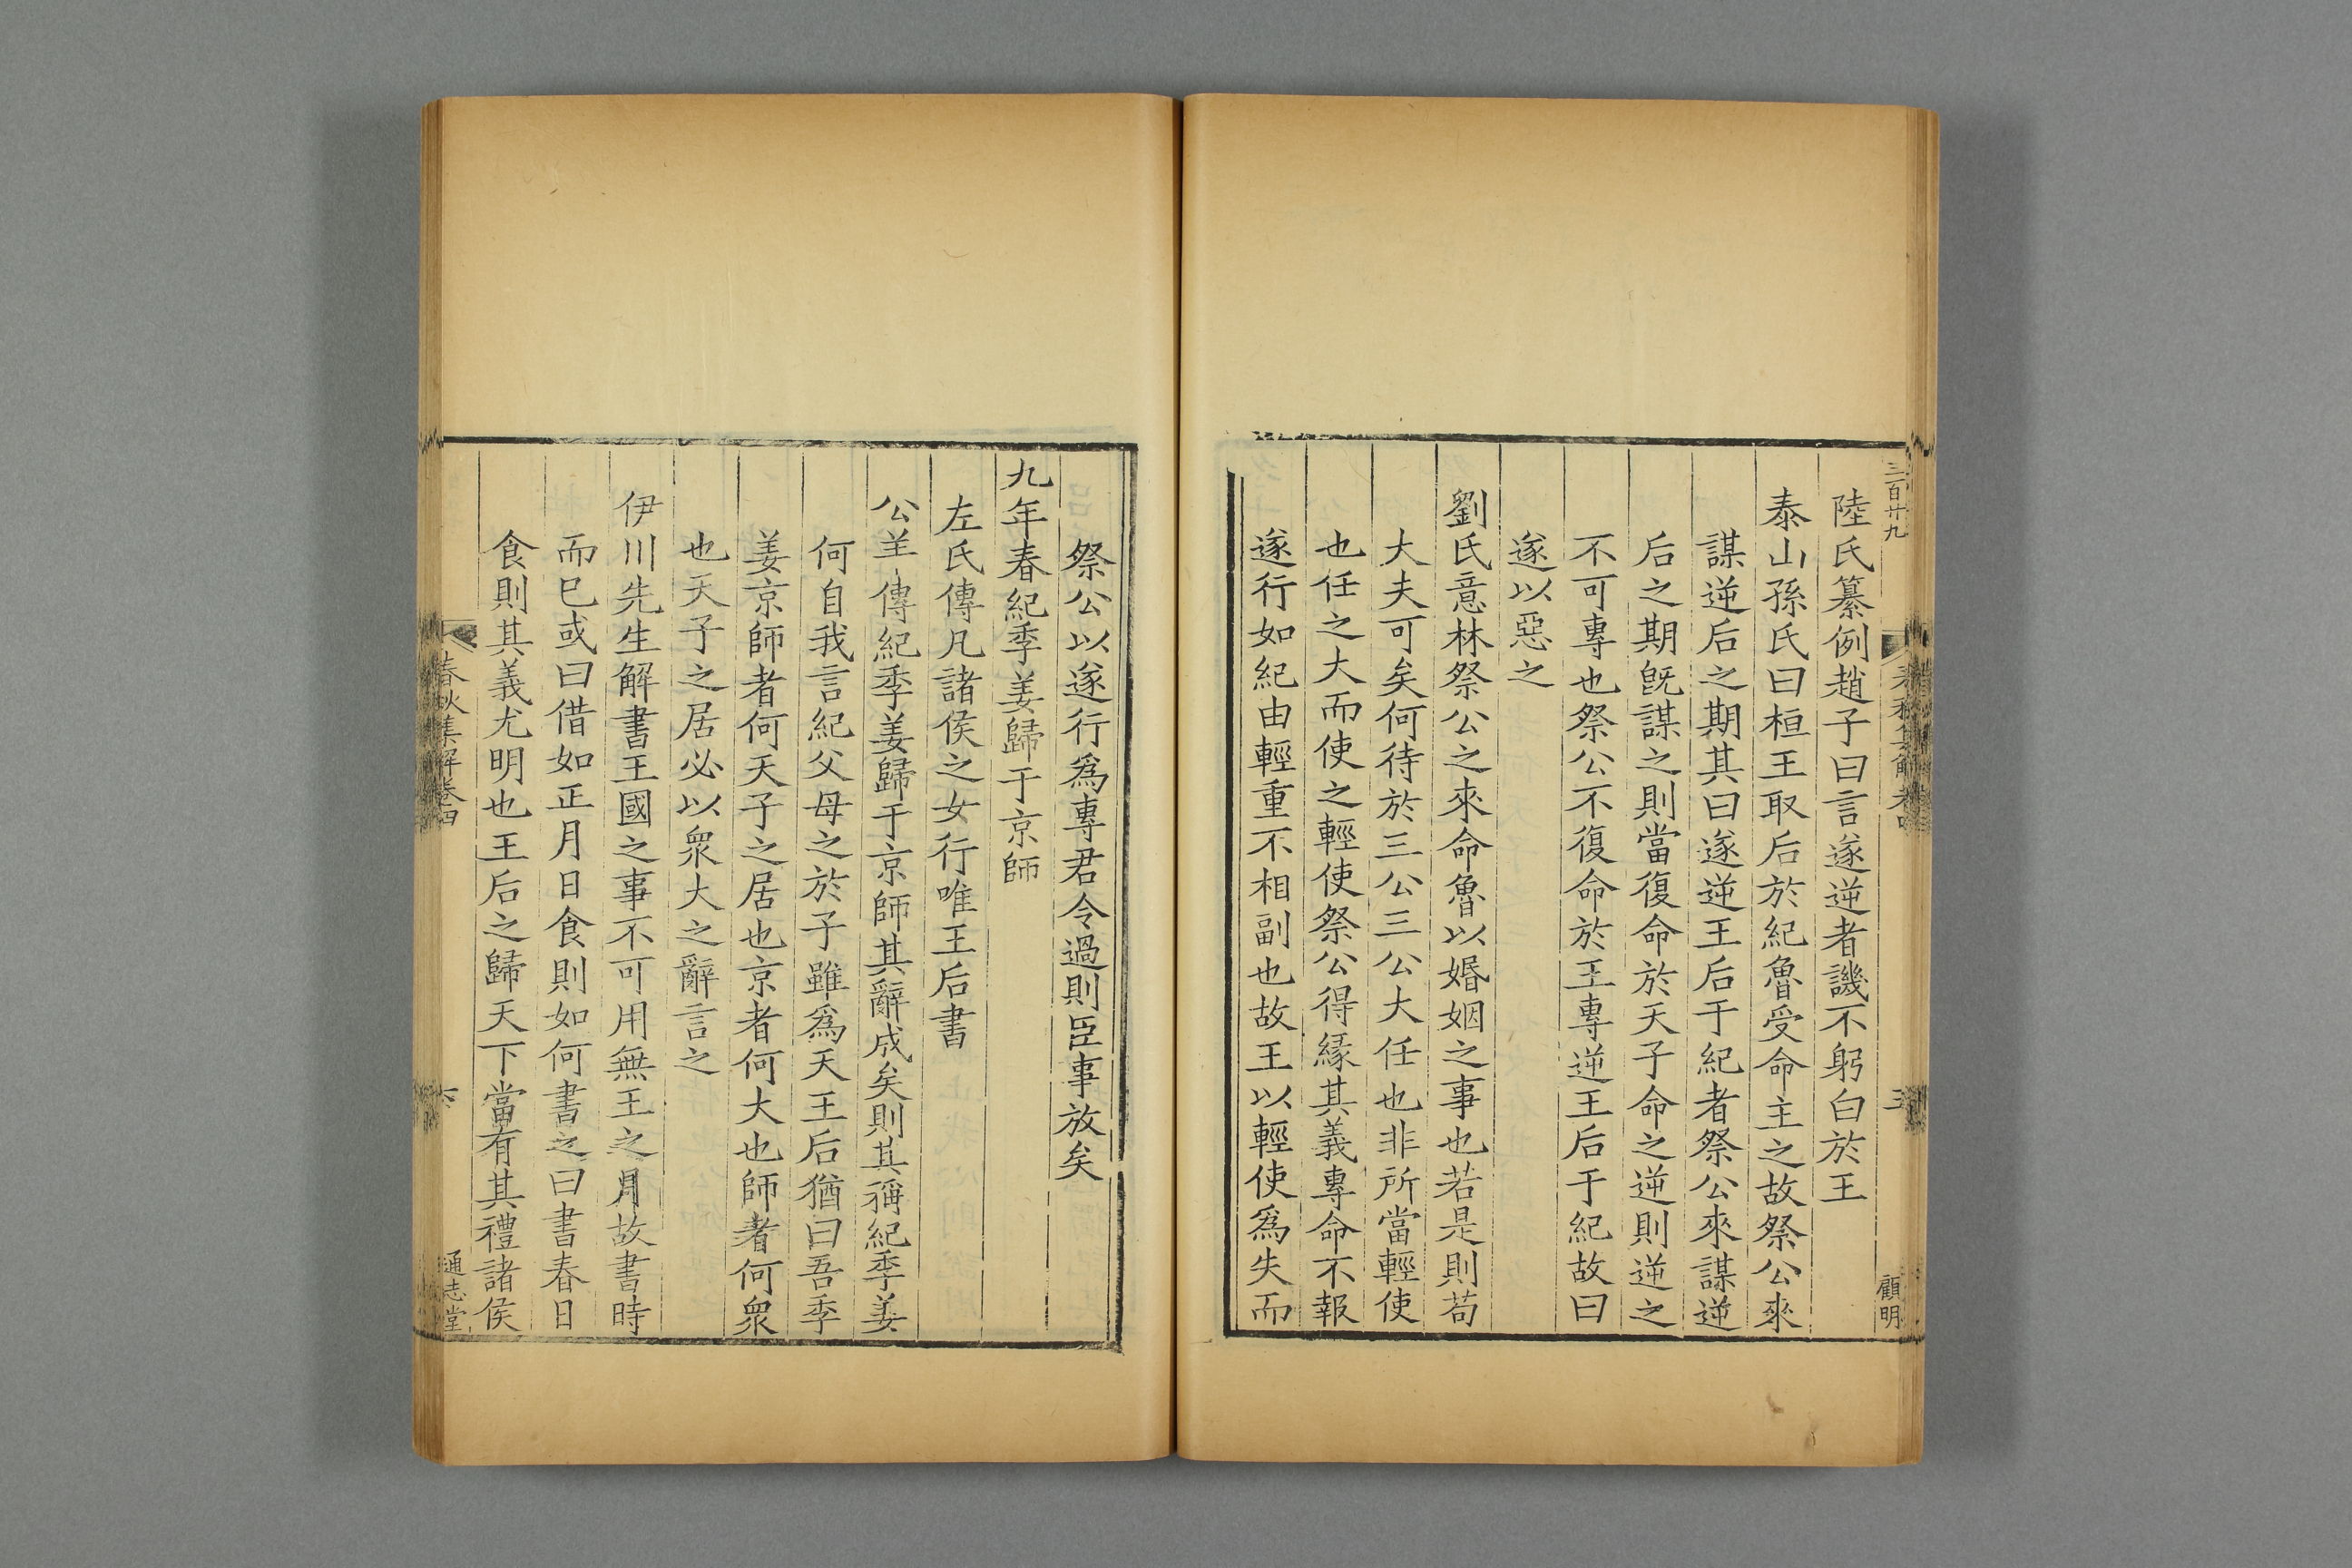 三百卄九
春秋集解卷四
五
顧明
陸氏纂例趙子曰言遂逆者譏不躬白於王
泰山孫氏曰桓王取后於紀魯受命主之故祭公來
謀逆后之期其曰遂逆王后于紀者祭公來謀逆
后之期旣謀之則當復命於天子命之逆則逆之
不可專也祭公不復命於王專逆王后于紀故曰
遂以惡之
劉氏意林祭公之來命魯以婚姻之事也若是則苟
大夫可矣何待於三公三公大任也非所當輕使
也任之大而使之輕使祭公得緣其義專命不報
遂行如紀由輕重不相副也故王以輕使爲失而
祭公以遂行爲專君令過則臣事放矣
九年春紀季姜歸于京師
左氏傳凡諸侯之女行唯王后書
公羊傳紀季姜歸于京師其辭成矣則其稱紀季姜
何自我言紀父母之於子雖爲天王后猶曰吾季
姜京師者何天子之居也京者何大也師者何衆
也天子之居必以衆大之辭言之
伊川先生解書王國之事不可用無王之月故書時
而已或曰借如正月日食則如何書之曰書春日
食則其義尤明也王后之歸天下當有其禮諸侯
春秋集解卷四
六
通志堂